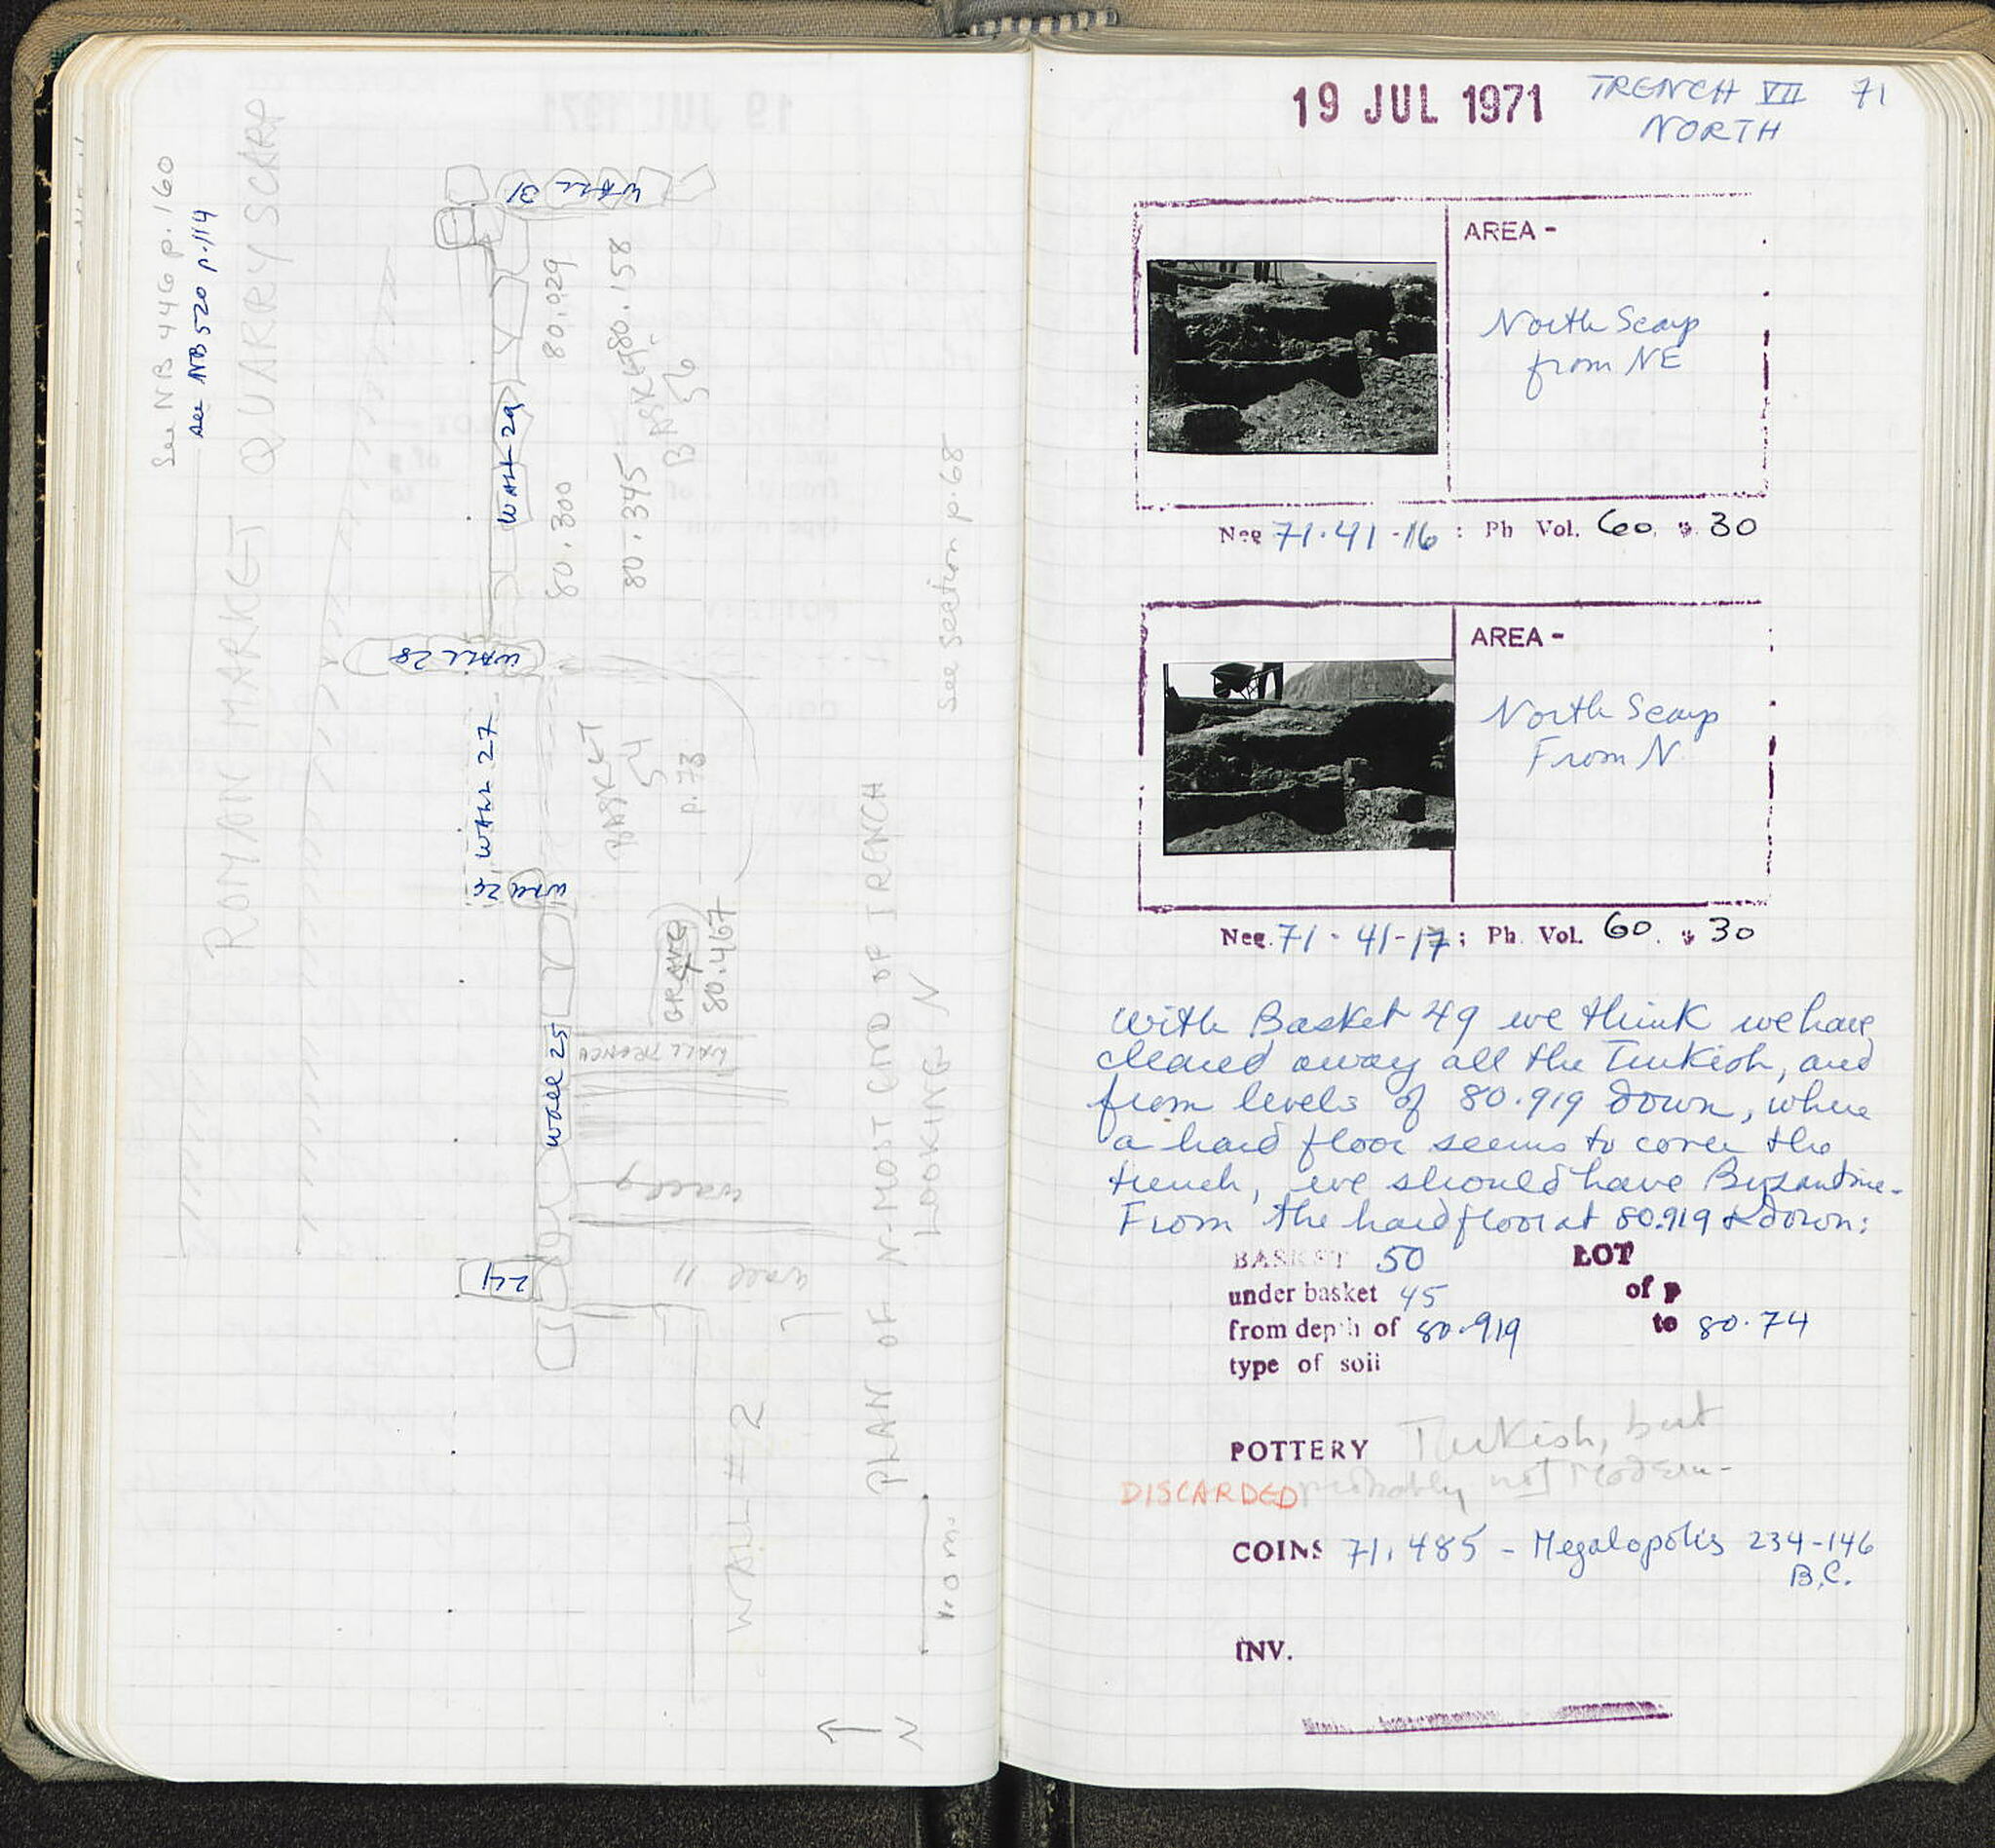 See NB 446 p. 160
see NB 520 p. 114
QUARRY SCARP
ROMAN MARKET
WALL 31
WALL 29
80.029
80.300
80.158
80.345
BASKET
BASKET
56
WALL 28
WALL 27
BASKET
54
p. 73
WALL 25
GRAVE
80.467
WALL TRENCH
wall 9
wall 11
24
WALL # 2
see section p. 68
PLAN OF N-MOST END OF TRENCH
LOOKING N
1.0 m.
N
19 JUL 1971
TRENCH VII 71
NORTH
AREA -
North Scarp
from NE
Neg 71.41-16 : Ph Vol. 60. p. 30
AREA -
North Scarp
From N
Neg. 71-41-17 ; Ph. Vol. 60. p 30
With Basket 49 we think we have
cleared away all the Turkish, and
from levels of 80.919 down, where
a hard floor seems to cover the
trench, we should have Byzantine.
From the hard floor at 80.919 & down:
BASKET 50 LOT
under basket 45 of p
from depth of 80.919 to 80.74
type of soil
POTTERY Turkish, but
DISCARDED probably not Modern-
COINS 71.485 - Megalopolis 234-146
B.C.
INV.